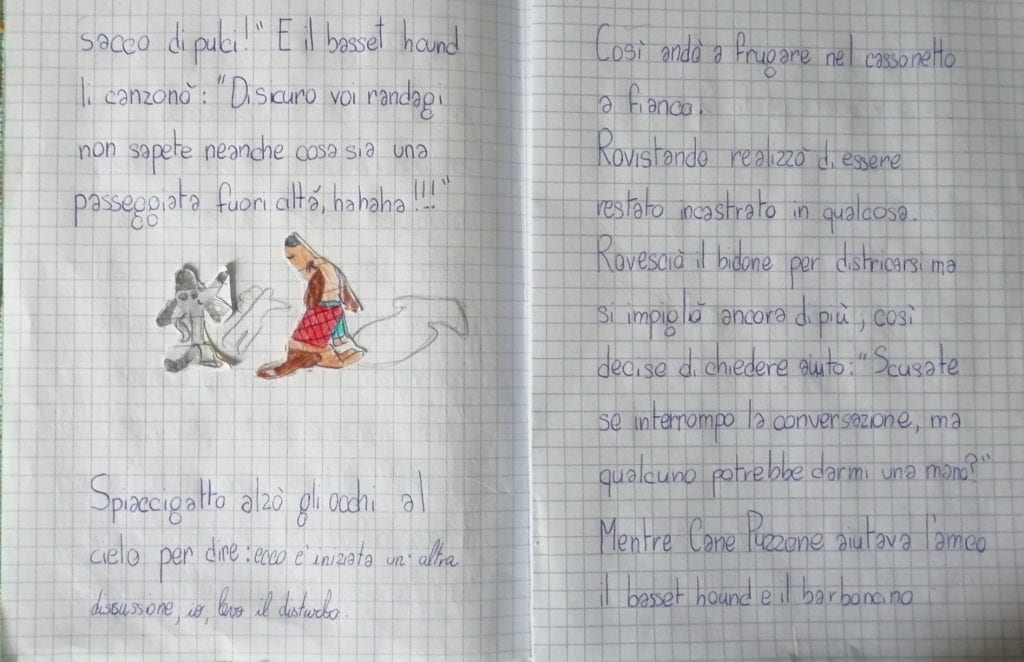 sacco di pulci!" E il basset hound
li canzonò: "Di sicuro voi randagi
non sapete neanche cosa sia una
passeggiata fuori città, hahaha!!!"
Spiaccigatto alzò gli occhi al
cielo per dire: ecco è iniziata un'altra
discussione, io, levo il disturbo.
Così andò a frugare nel cassonetto
a fianco.
Rovistando realizzò di essere
restato incastrato in qualcosa.
Rovesciò il bidone per districarsi ma
si impigliò ancora di più, così
decise di chiedere aiuto: "Scusate
se interrompo la conversazione, ma
qualcuno potrebbe darmi una mano?"
Mentre Cane Puzzone aiutava l'amico
il basset hound e il barboncino